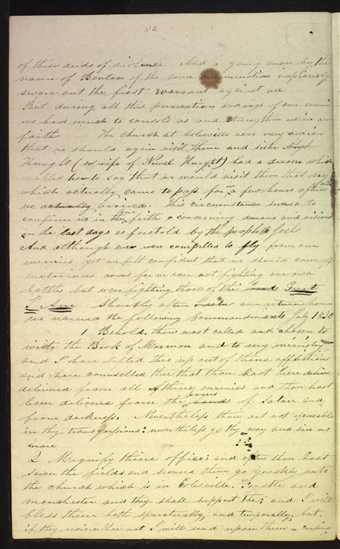 of these deeds of violence. And a young man by the
name of Benton of the same religiously
swore out the first warrant against me
But during all this persecution and rage of our enemies
we had much to console us and strengthen us in our
faith. The church at Colesville were very anxious
that we should again visit them and sister
Knight (wife of Newel Knight) had a dream which
enabled her to say that we would visit them that day
which actually came to pass for a few hours after
we arrived. This circumstance served to
confirm us in the faith concerning dreams and visions
in the last days as foretold by the prophet Joel
And although we were compelled to fly from our
enemies yet we felt confident that we should come off
victorious for we were not fighting our own
battles but were fighting those of the
Shortly after our return home
we received the following Commandments July 1830
1 Behold, thou wast called and chosen to
write the Book of Mormon and to my ministry
and I have lifted thee up out of thine affliction
and have counselled thee that thou hast been
delivered from all thine enemies and thou hast
been delivered from the powers of satan and
from darkness. Nevertheless thou art not excusable
in thy transgressions: nevertheless go thy way and sin no
more
2 Magnify thine office; and after thou hast
sowed thy fields and secured them go speedily unto
the church which is in Colesville, Fayette and
Manchester and they shall support thee; and I will
bless them both spiritually and temporally, but,
if they receive thee not I will send upon them a cursing